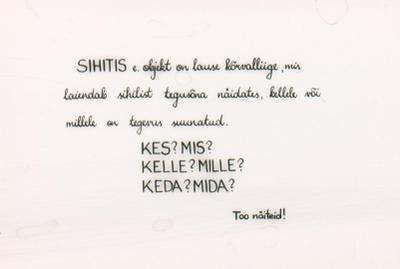 SIHITIS e. objekt on lause kõrvalliige, mis
laiendab sihilist tegusõna näidates, kellele või
millele on tegevus suunatud.
KES? MIS?
KELLE? MILLE?
KEDA? MIDA?
Too näiteid!